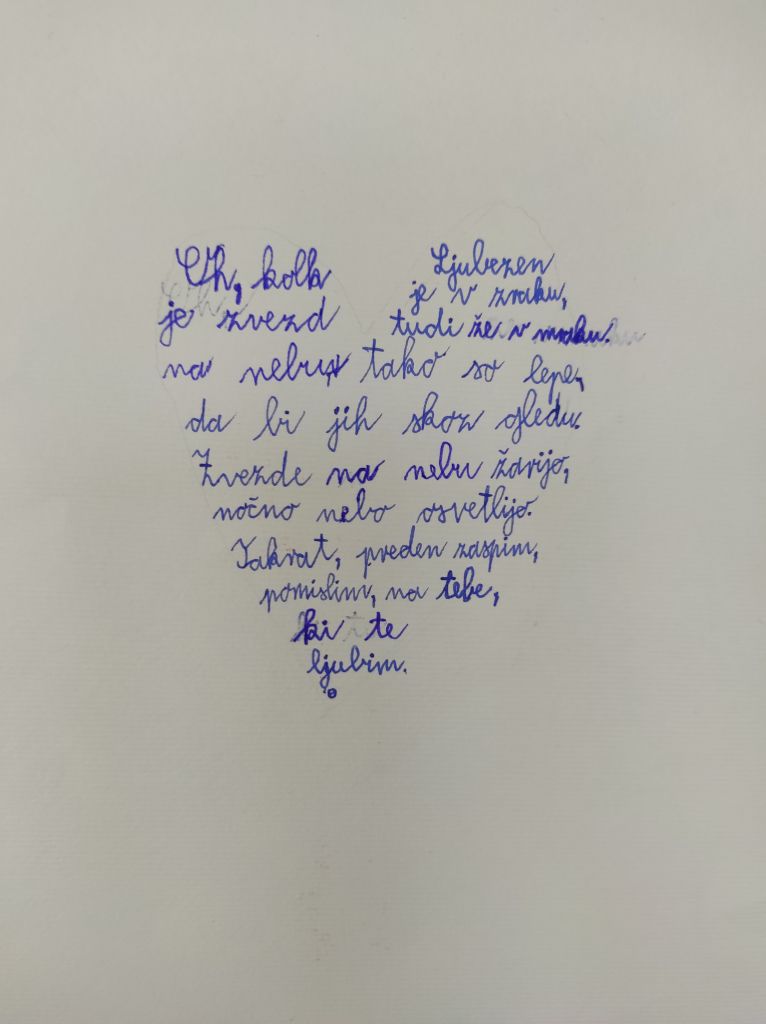 Oh, kolk
je zvezd
Ljubezen
je v zraku,
tudi že v mraku.
na nebu, tako so lepe,
da bi jih skoz gledu.
Zvezde na nebu žarijo,
nočno nebo osvetlijo.
Takrat, preden zaspim,
pomislim, na tebe,
ki te
ljubim.